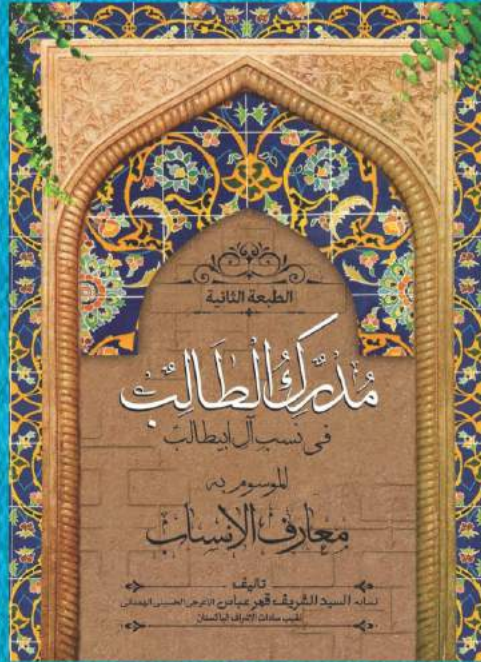 الطبعة الثانية
مُدْرِكُ الطَالِبْ
في نسب آل ابيطالب
الموسوم به
معارف الانساب
تاليف
نسابه السيد الشريف قمر عباس الاعرجي الحسيني الهمداني
نقيب سادات الاشراف الباكستان